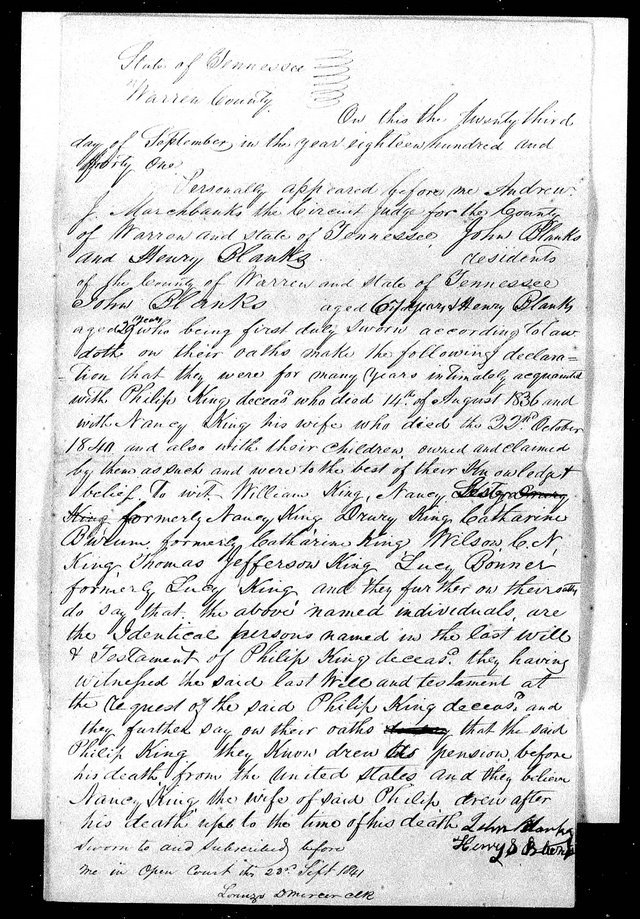 State of Tennessee
Warren County
On this the twenty third
day of September in the year eighteen hundred and
forty one
Personally appeared before me Andrew
J. Marchbanks the Circuit Judge for the County
of Warren and state of Tennessee John Blanks
and Henry Blanks residents
of the County of Warren and state of Tennessee
John Blanks aged 67 years & Henry Blanks
aged 29 years who being first duly sworn according to law
doth on their oaths make the following declara-
-tion that they were for many years intimately acquainted
with Philip King deceasd who died 14th of August 1836 and
with Nancy King his wife who died the 22nd October
1840 and also with their children owned and claimed
by them as such and were to the best of their Knowledge &
belief To wit William King, Nancy Lester
King formerly Nancy King Drury King Catharine
formerly Catharine King Wilson C. N.
King, Thomas Jefferson King Lucy Bonner
formerly Lucy King and they further on their oaths
do say that the above named individuals are
the Identical persons named in the last will
& Testament of Philip King deceasd. they having
witnessed the said last Will and testament at
the request of the said Philip King deceasd, and
they further say on their oaths that the said
Philip King they Know drew his pension before
his death from the United states and they believe
Nancy King the wife of said Philip drew after
his death up to the time of his death John Blanks
Sworn to and Subscribed before Henry S Blanks
me in Open Court this 23rd Sept 1841
Lorenzo D Mercer clk